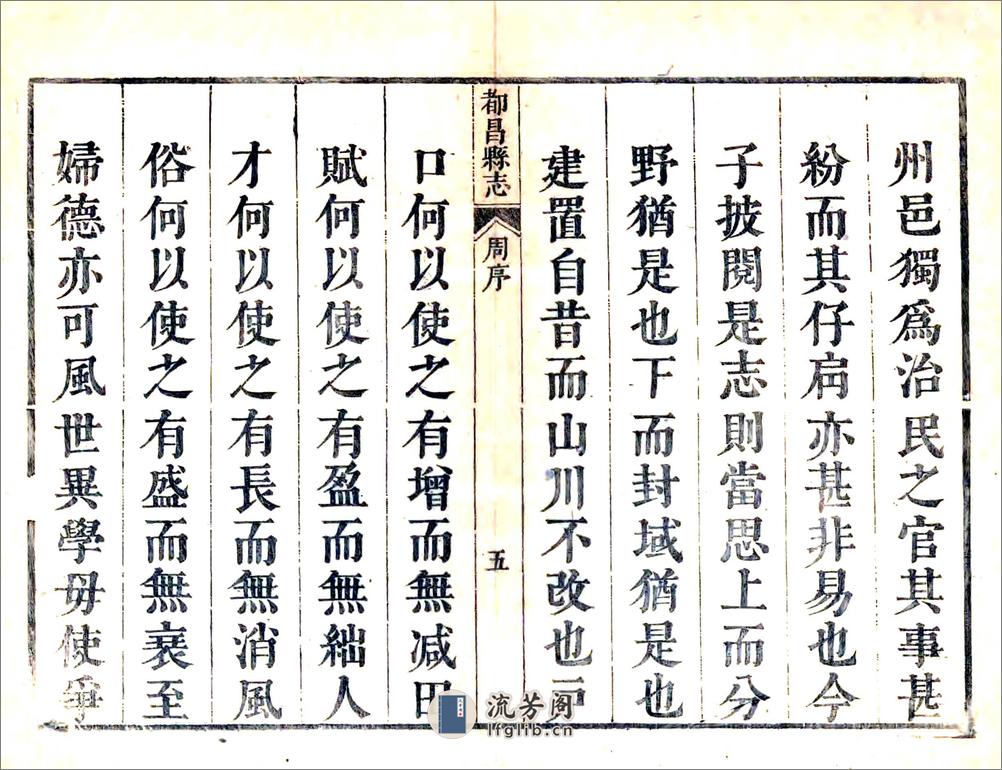 州邑獨爲治民之官其事甚
紛而其仔肩亦甚非易也今
子披閱是志則當思上而分
野猶是也下而封域猶是也
建置自昔而山川不改也戸
都昌縣志
周序
五
口何以使之有增而無減田
賦何以使之有盈而無絀人
才何以使之有長而無消風
俗何以使之有盛而無衰至
婦德亦可風世異學毋使爭
流芳阁
lfglib.cn